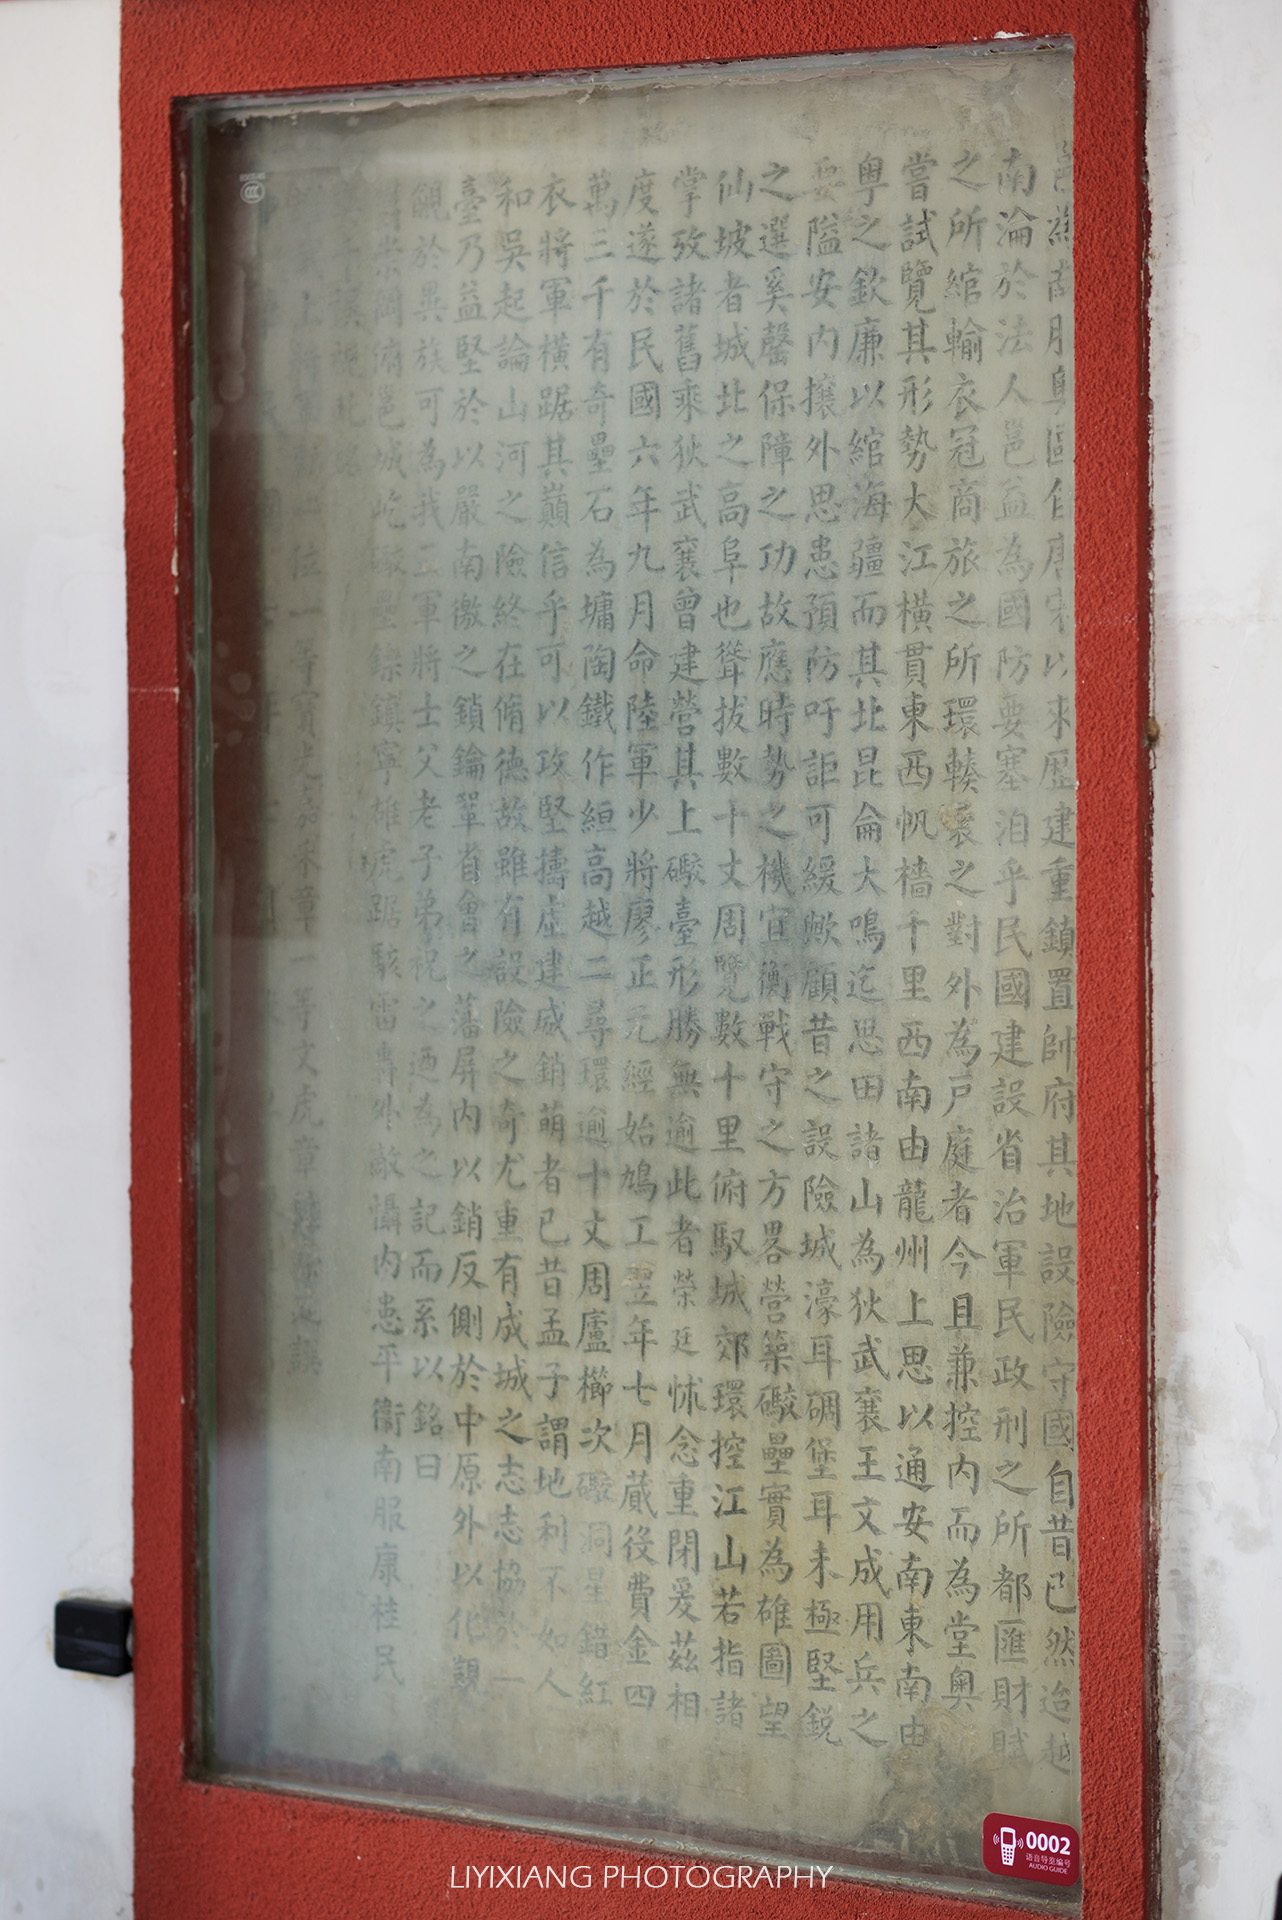 邕為南服奧區自唐宋以來歷建重鎮置帥府其地設險守國自昔已然迨越
南淪於法人邕益為國防要塞洎乎民國建設省治軍民政刑之所都匯財賦
之所綰輸衣冠商旅之所環轃衰之對外為戶庭者今且兼控內而為堂奧
嘗試覽其形勢大江橫貫東西帆檣千里西南由龍州上思以通安南東南由
粵之欽廉以綰海疆而其北昆侖大鳴迄思田諸山為狄武襄王文成用兵之
要隘安內攘外思患預防吁詎可緩歟顧昔之設險城濠耳碉堡耳未極堅銳
之選奚罄保障之功故應時勢之機宜衡戰守之方畧營築礮壘實為雄圖望
仙坡者城北之高阜也聳拔數十丈周覽數十里俯馭城郊環控江山若指諸
掌攷諸舊乘狄武襄曾建營其上礮臺形勝無逾此者榮廷怵念重閉爰茲相
度遂於民國六年九月命陸軍少將廖正元經始鳩工翌年七月蕆後費金四
萬三千有奇壘石為墉陶鐵作絙高越二尋環逾十丈周廬櫛次礮洞星錯紅
衣將軍橫踞其巔信乎可以攻堅擣虛建威銷萌者已昔孟子謂地利不如人
和吳起論山河之險終在脩德故雖有設險之奇尤重有成城之志志協於一
臺乃益堅於以嚴南徼之鎖鑰鞏省會之藩屏內以銷反側於中原外以化覬
覦於異族可為我三軍將士父老子弟祝之迺為之記而系以銘曰
崇岡俯邕城屹礮壘鎮寧雄虎踞駭雷轟外敵懾內患平衞南服康桂民
上將軍 位一等寶光嘉禾章一等文虎章 謨
LIYIXIANG PHOTOGRAPHY
0002
语音导览编号
AUDIO GUIDE